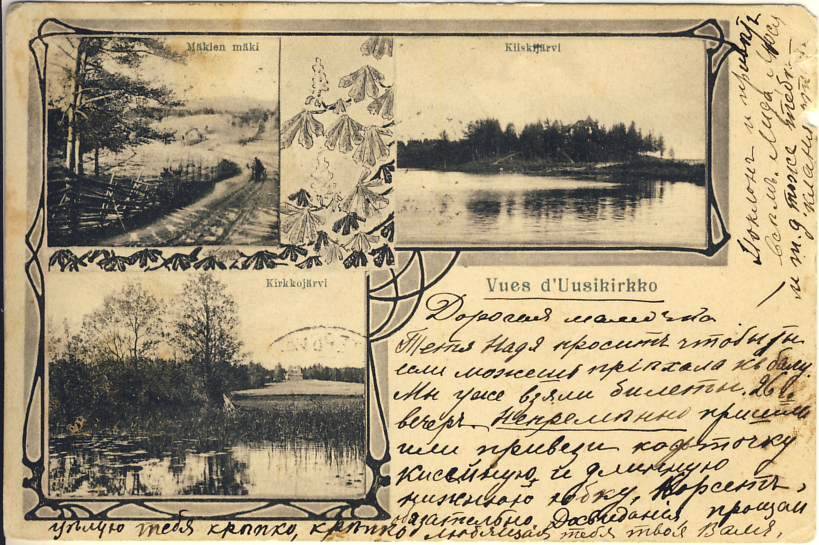 Mäkien mäki
Kiiskijärvi
Kirkkojärvi
Vues d'Uusikirkko
Дорогая мамочка
Тетя Надя проситъ чтобы ты
если можешь пріѣхала къ балу
Мы уже взяли билеты. 26
вечеръ непремѣнно пришли
или привези кофточку
кисейную, и длинную
нижнюю юбку, Корсетъ,
обязательно Досвиданія прощай
цѣлую тебя крѣпко, крѣпко любящая тебя твоя Валя.
Поклонъ и привѣтъ
всѣмъ. Лида
и т.д тоже тебѣ